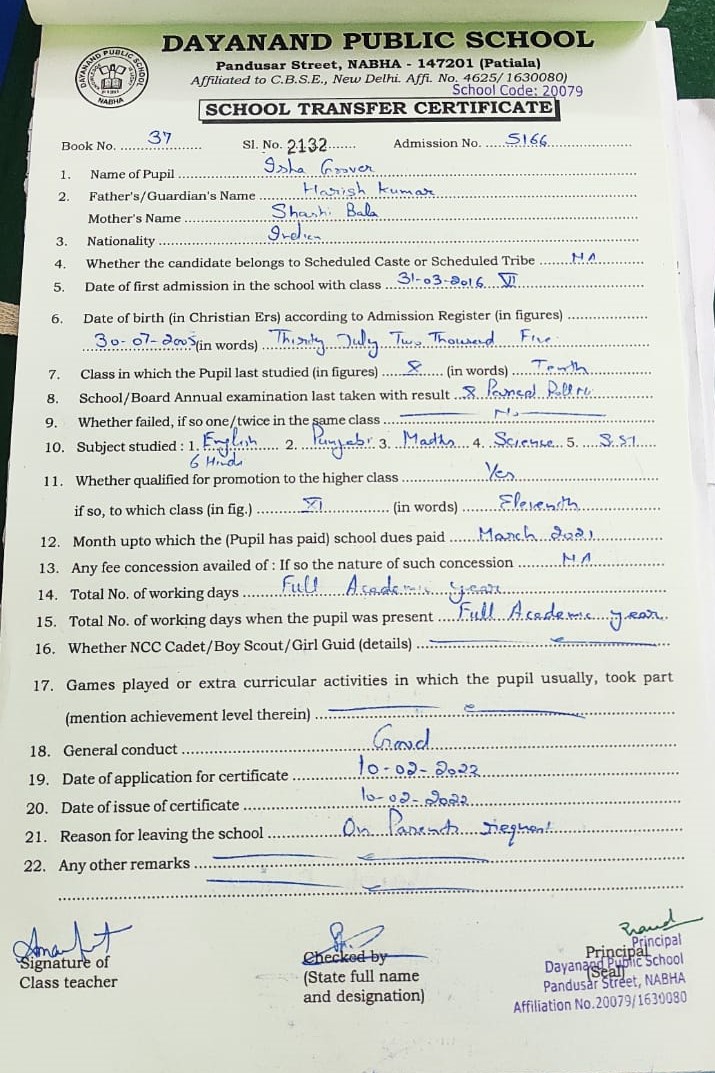 DAYANAND PUBLIC SCHOOL
Pandusar Street, NABHA - 147201 (Patiala)
Affiliated to C.B.S.E., New Delhi. Affi. No. 4625/ 1630080)
School Code: 20079
DAYANAND PUBLIC SCHOOL NABHA
SCHOOL TRANSFER CERTIFICATE
Book No. 37 Sl. No. 2132 Admission No. 5166
1. Name of Pupil Isha Groover
2. Father's/Guardian's Name Harish Kumar
Mother's Name Shashi Bala
3. Nationality Indian
4. Whether the candidate belongs to Scheduled Caste or Scheduled Tribe NA
5. Date of first admission in the school with class 31-03-2016 VI
6. Date of birth (in Christian Ers) according to Admission Register (in figures)
30-07-2005 (in words) Thirty July Two Thousand Five
7. Class in which the Pupil last studied (in figures) X (in words) Tenth
8. School/Board Annual examination last taken with result X Passed Roll No.
9. Whether failed, if so one/twice in the same class No
10. Subject studied : 1. English 2. Punjabi 3. Maths 4. Science 5. S.St
6 Hindi
11. Whether qualified for promotion to the higher class Yes
if so, to which class (in fig.) XI (in words) Eleventh
12. Month upto which the (Pupil has paid) school dues paid March 2021
13. Any fee concession availed of : If so the nature of such concession NA
14. Total No. of working days Full Academic year
15. Total No. of working days when the pupil was present Full Academic year
16. Whether NCC Cadet/Boy Scout/Girl Guid (details)
17. Games played or extra curricular activities in which the pupil usually, took part
(mention achievement level therein)
18. General conduct Good
19. Date of application for certificate 10-02-2022
20. Date of issue of certificate 10-02-2022
21. Reason for leaving the school On Parents request
22. Any other remarks
Signature of
Class teacher
Checked by
(State full name
and designation)
Principal
(Seal)
Principal
Dayanand Public School
Pandusar Street, NABHA
Affiliation No.20079/1630080